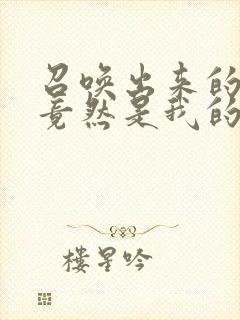 召唤出来的
竟然是我的
楼星吟